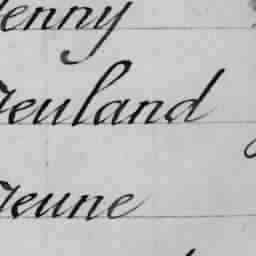 enny
euland
eune